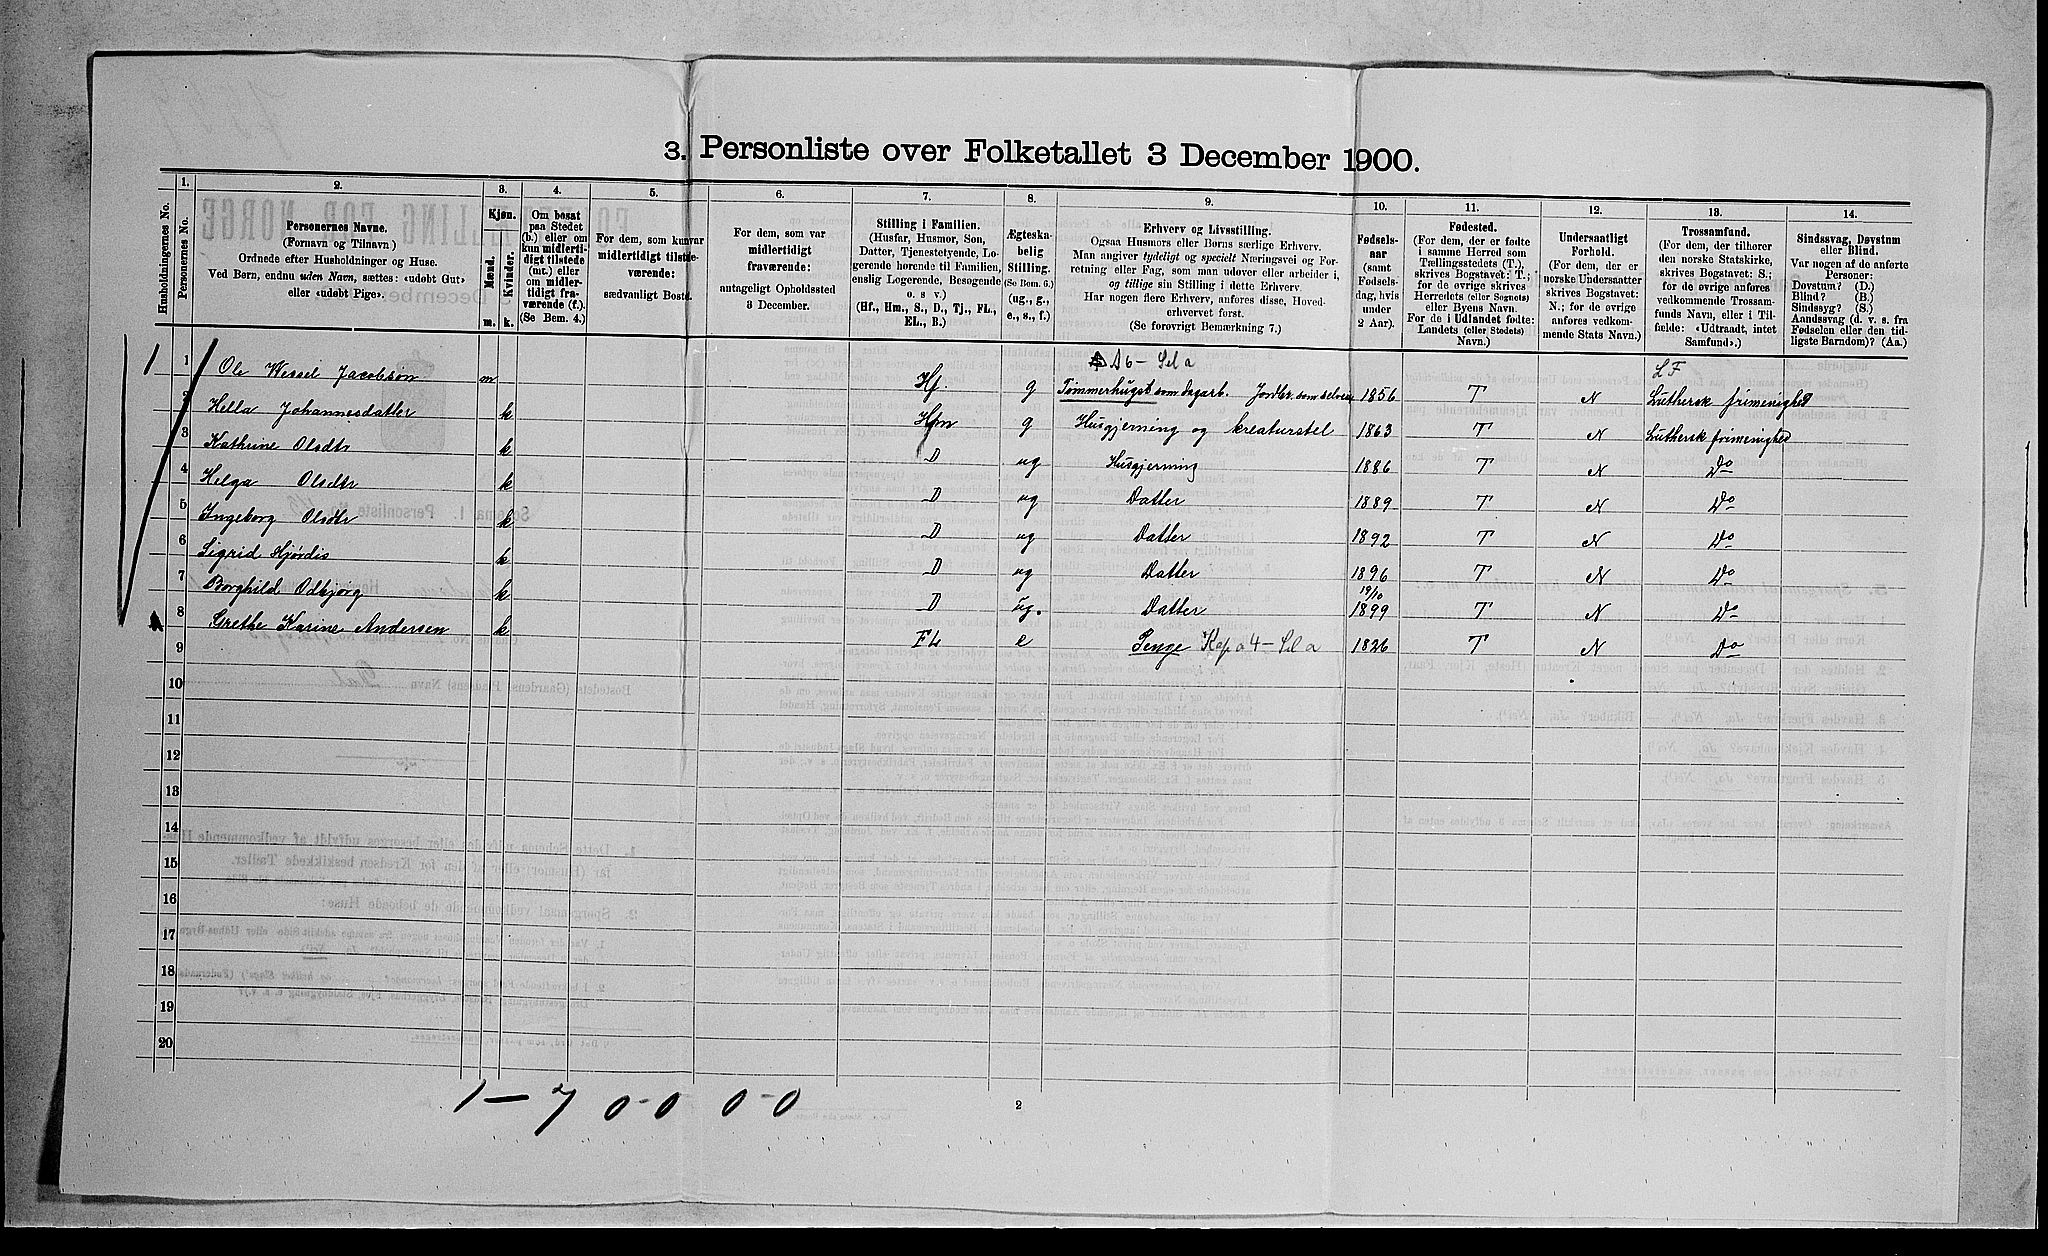 3. Personliste over Folketallet 3 December 1900.
1. 2. 3. 4. 5. 6. 7. 8. 9. 10. 11. 12. 13. 14.
Husholdningernes No.
Personernes No.
Personernes Navne.
(Fornavn og Tilnavn)
Ordnede efter Husholdninger og Huse.
Ved Børn, endnu uden Navn, sættes: «udøbt Gut»
eller «udøbt Pige».
Kjøn.
Mænd.
Kvinder.
m. k.
Om bosat
paa Stedet
(b.) eller om
kun midlerti-
digt tilstede
(mt.) eller
om midler-
tidigt fra-
værende (f.).
(Se Bem. 4.)
For dem, som kun var
midlertidigt tilstede-
værende:
sædvanligt Bosted.
For dem, som var
midlertidigt
fraværende:
antageligt Opholdssted
3 December.
Stilling i Familien.
(Husfar, Husmor, Søn,
Datter, Tjenestetyende, Lo-
gerende hørende til Familien,
enslig Logerende, Besøgende
o. s v.)
(Hf., Hm., S., D., Tj., FL.,
EL., B.)
Ægteska-
belig
Stilling.
(Se Bem. 6.)
(ug., g.,
e., s., f.)
Erhverv og Livsstilling.
Ogsaa Husmors eller Børns særlige Erhverv.
Man angiver tydeligt og specielt Næringsvei og For-
retning eller Fag, som man udøver eller arbeider i,
og tillige sin Stilling i dette Erhverv.
Har nogen flere Erhverv, anføres disse, Hoved-
erhvervet først.
(Se forøvrigt Bemærkning 7.)
Fødsels-
aar
(samt
Fødsels-
dag, hvis
under
2 Aar).
Fødested.
(For dem, der er fødte
i samme Herred som
Tællingsstedets (T.),
skrives Bogstavet: T.;
for de øvrige skrives
Herredets (eller Sognets)
eller Byens Navn.
For de i Udlandet fødte:
Landets (eller Stedets)
Navn.)
Undersaatligt
Forhold.
(For dem, der er
norske Undersaatter
skrives Bogstavet:
N.; for de øvrige
anføres vedkom-
mende Stats Navn.)
Trossamfund.
(For dem, der tilhører
den norske Statskirke,
skrives Bogstavet: S.;
for de øvrige anføres
vedkommende Trossam-
funds Navn, eller i Til-
fælde: «Udtraadt, intet
Samfund».)
Sindssvag, Døvstum
eller Blind.
Var nogen af de anførte
Personer:
Døvstum? (D.)
Blind? (B.)
Sindssyg? (S.)
Aandssvag (d. v. s. fra
Fødselen eller den tid-
ligste Barndom)? (Aa.)
A6 - Sel a
L F
1 1 Ole Wessel Jacobsøn m Hf. g Tømmerhugst som dagarb. Jordbr. som selveier 1856 T N Luthersk frimenighed
2 Hella Johannesdatter k Hm g Husgjerning og kreaturstel 1863 T N Luthersk frimenighed
3 Kathrine Olsdtr k D ug Husgjerning 1886 T N Do
4 Helga Olsdtr k D ug Datter 1889 T N Do
5 Ingeborg Olsdtr k D ug Datter 1892 T N Do
6 Sigrid Hjørdis k D ug Datter 1896 T N Do
7 Borghild Odbjørg k D ug. Datter 19/10 1899 T N Do
8 Grethe Karine Andersen k FL e Penge Kap a 4 - Sel a 1826 T N Do
9
10
11
12
13
14
15
16
17
18
19
20
1 - 7 0-0 0-0
2